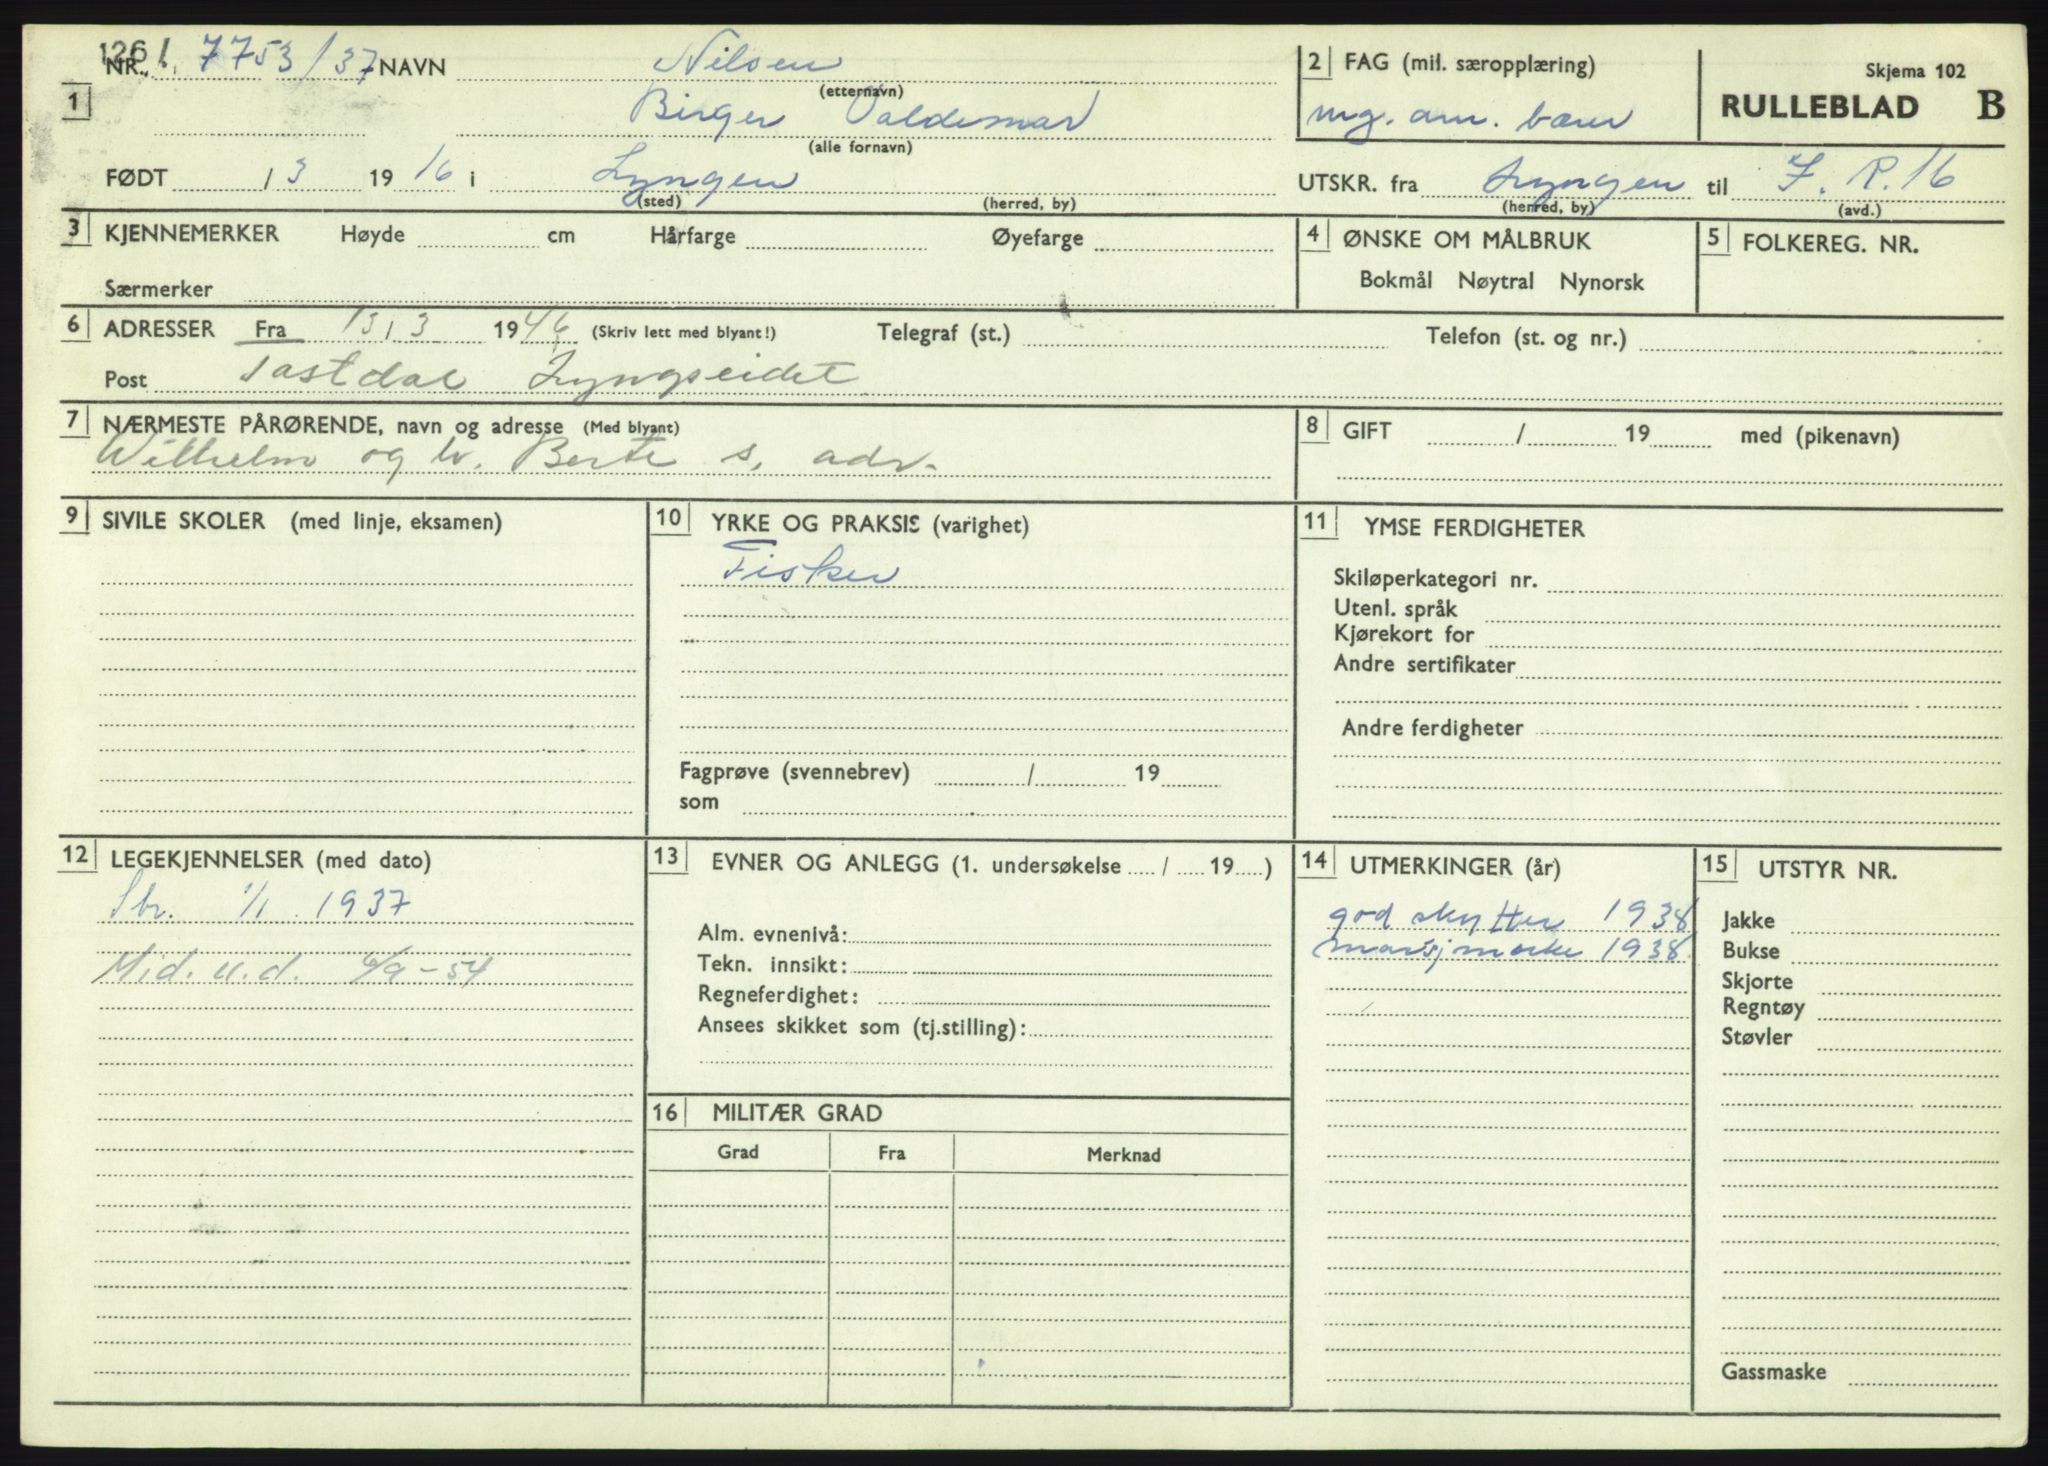 1261.
NR. 7753/37 NAVN Nilsen
(etternavn)
1
Birger Valdemar
(alle fornavn)
FØDT / 3 19 16 i Lyngen
(sted) (herred, by)
2 FAG (mil. særopplæring)
mg. am. bærer
Skjema 102
RULLEBLAD B
UTSKR. fra Lyngen til I. R. 16
(herred, by) (avd.)
3 KJENNEMERKER Høyde cm Hårfarge Øyefarge
Særmerker
4 ØNSKE OM MÅLBRUK
Bokmål Nøytral Nynorsk
5 FOLKEREG. NR.
6 ADRESSER Fra 13 / 3 1946 (Skriv lett med blyant!) Telegraf (st.) Telefon (st. og nr.)
Post Lyngseidet
7 NÆRMESTE PÅRØRENDE, navn og adresse (Med blyant)
Wilhelm og h. s. adr.
8 GIFT / 19 med (pikenavn)
9 SIVILE SKOLER (med linje, eksamen)
10 YRKE OG PRAKSIS (varighet)
Fisker
Fagprøve (svennebrev) / 19
som
11 YMSE FERDIGHETER
Skiløperkategori nr.
Utenl. språk
Kjørekort for
Andre sertifikater
Andre ferdigheter
12 LEGEKJENNELSER (med dato)
Sbr. 1/1 1937
Mid. u.d. 6/9-54
13 EVNER OG ANLEGG (1. undersøkelse / 19 )
Alm. evnenivå:
Tekn. innsikt:
Regneferdighet:
Ansees skikket som (tj.stilling):
14 UTMERKINGER (år)
god skytter 1938
marsjmerke 1938
15 UTSTYR NR.
Jakke
Bukse
Skjorte
Regntøy
Støvler
Gassmaske
16 MILITÆR GRAD
Grad Fra Merknad